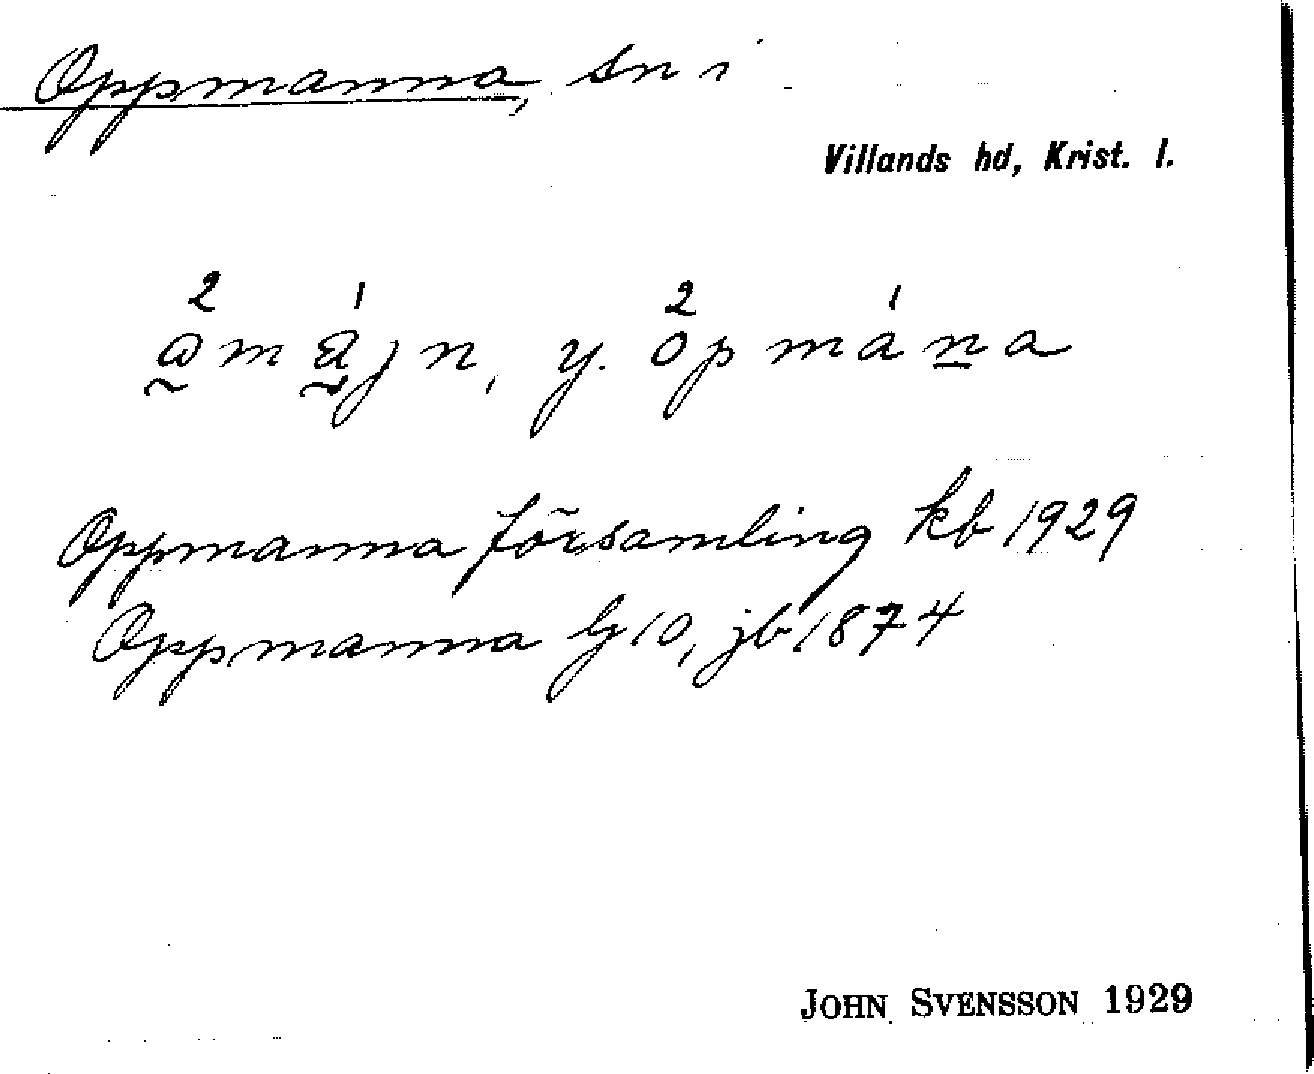 Oppmanna, sn i
Villands hd, Krist. l.
y. òpmána
Oppmanna församling kb 1929
Oppmanna by 10, jb 1874
JOHN SVENSSON 1929